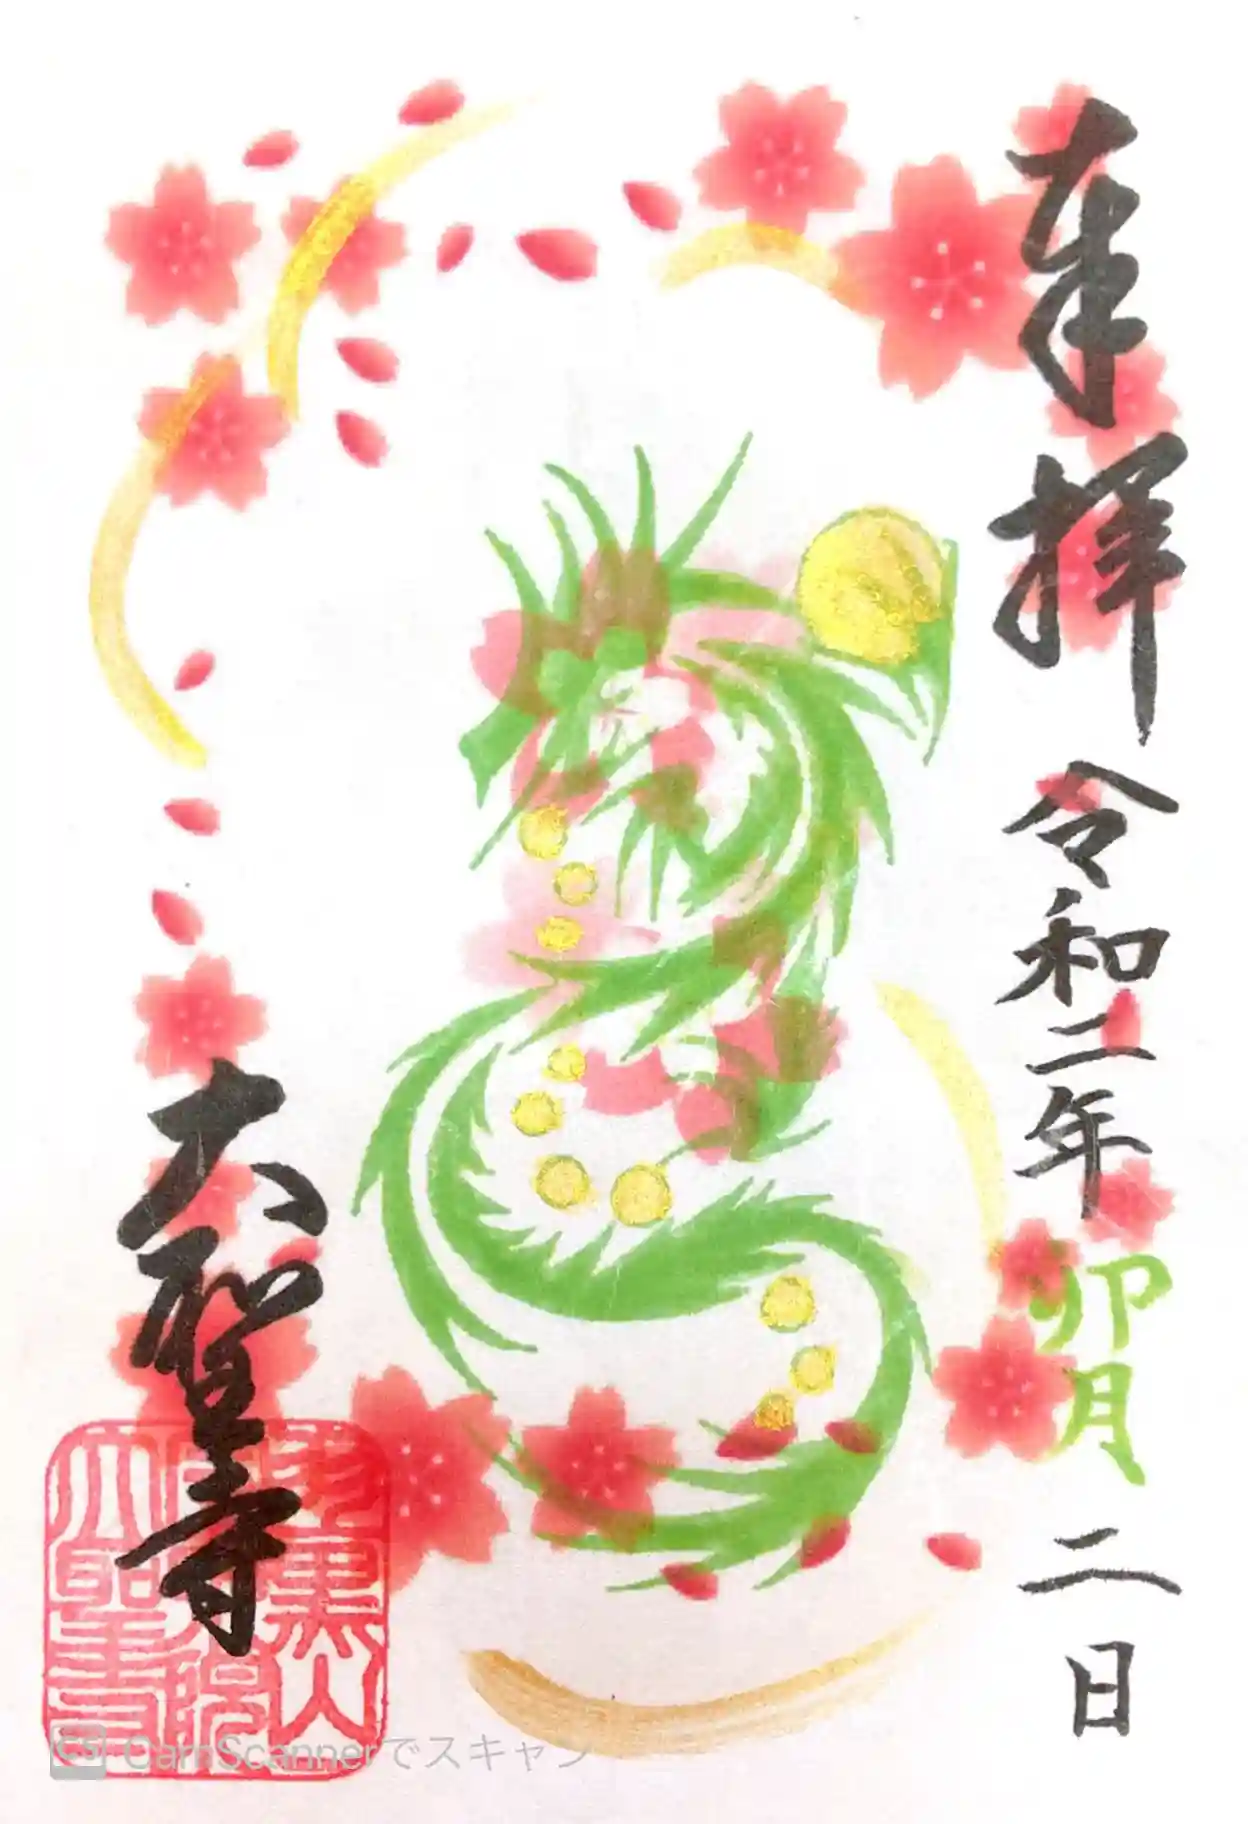 奉拝
令和二年
卯月
二日
大聖寺
CamScannerでスキャン